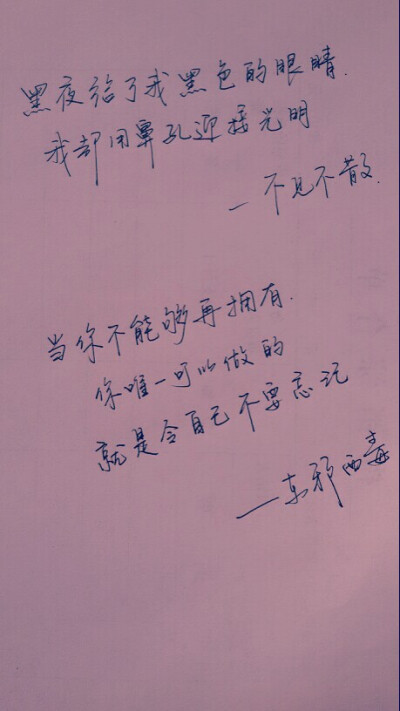 黑夜给了我黑色的眼睛.
我却用鼻孔迎接光明
—不见不散.
当你不能够再拥有.
你唯一可以做的
就是令自己不要忘记
—东邪西毒